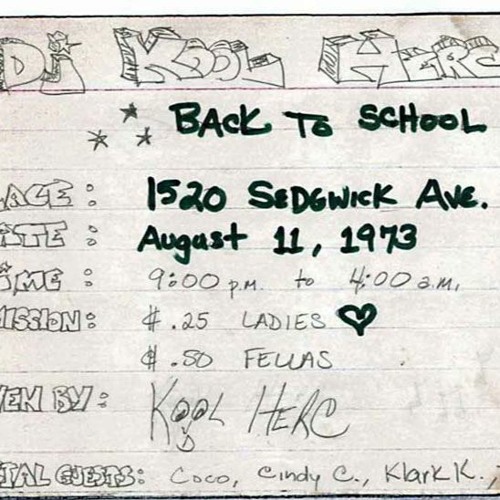 DJ KOOL HERC
BACK TO SCHOOL
LACE: 1520 SEDGWICK AVE.
ATE: August 11, 1973
IME: 9:00 p.m. to 4:00 a.m.
ISSION: $.25 LADIES ♥
$.50 FELLAS
EN BY: KOOL HERC
IAL GUESTS: Coco, Cindy C., Klark K.,